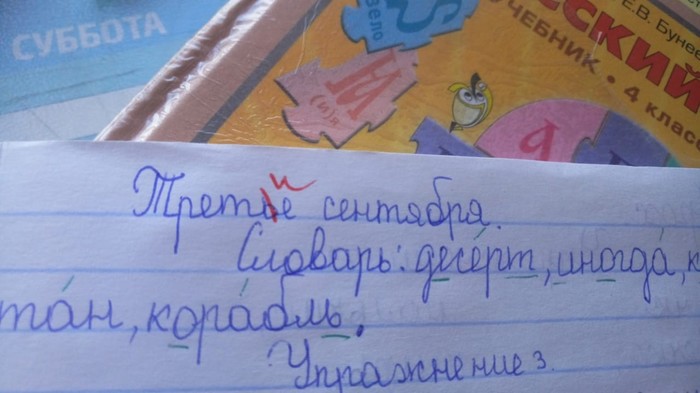 СУББОТА
Е.В. Буне
сский
УЧЕБНИК • 4 класс
зело
И
и
Третье сентября.
Словарь: десе́рт, иногда́, к
та́н, кора́бль.
Упражнение 3.